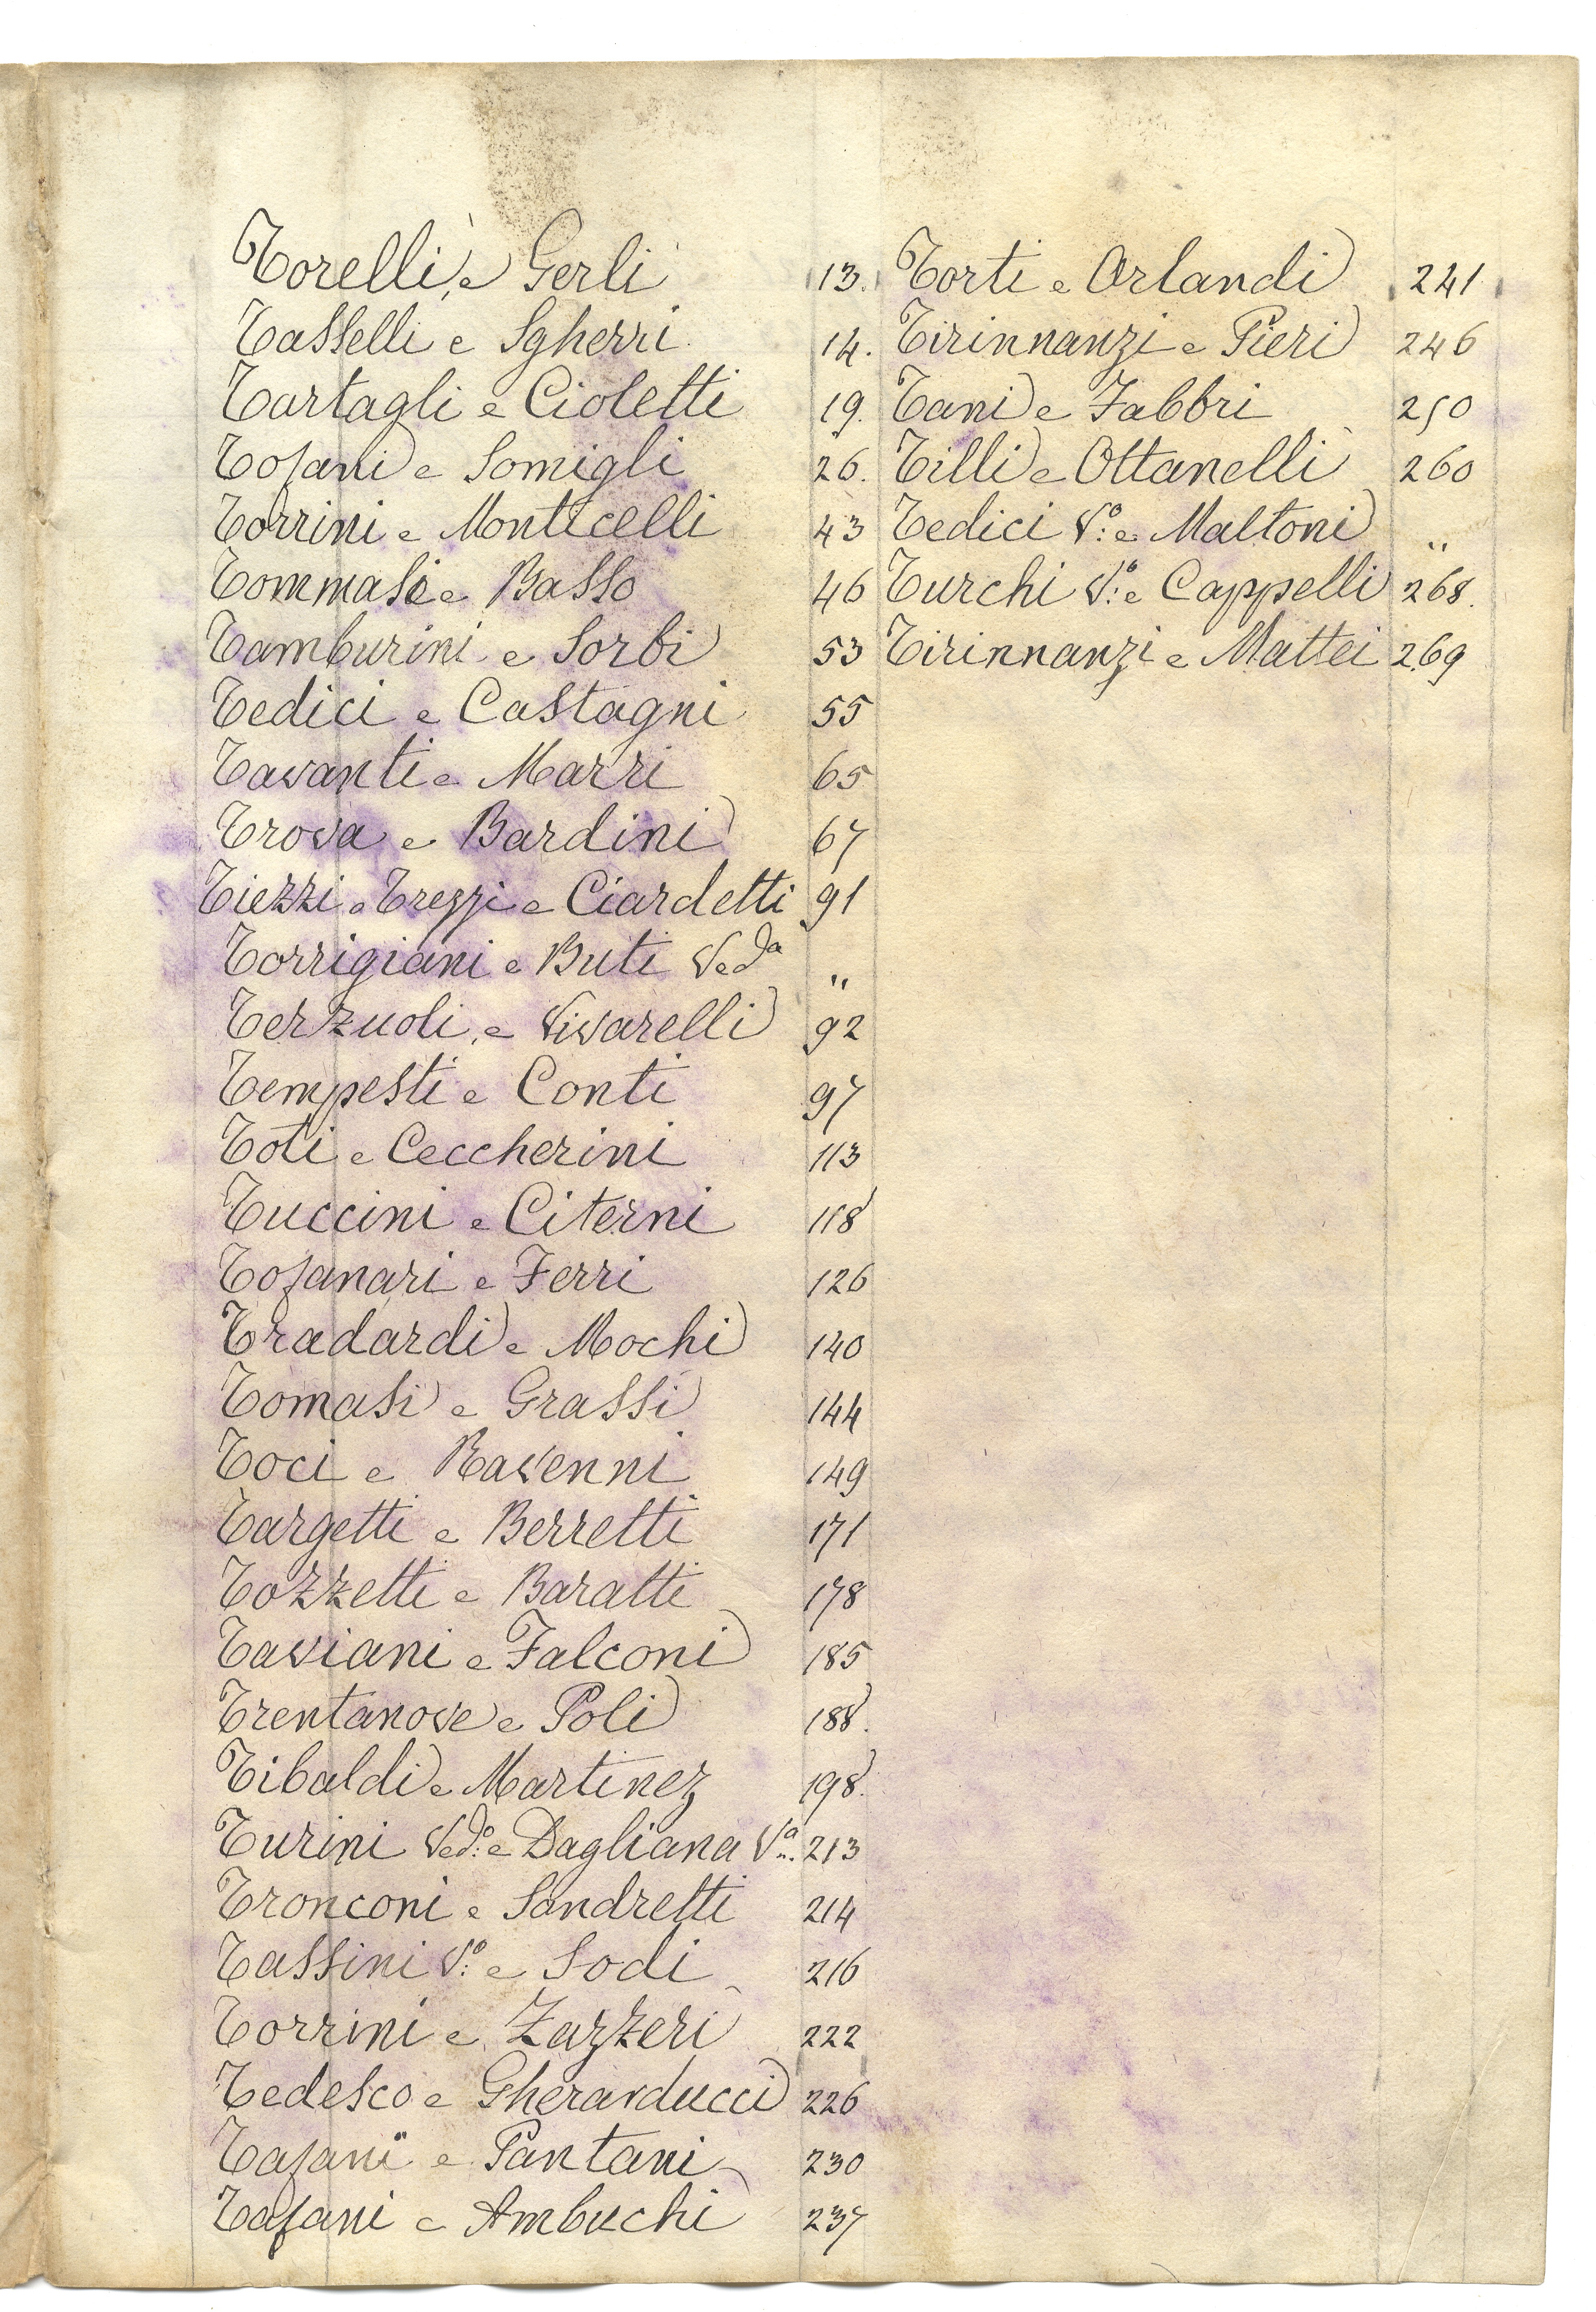 Torelli e Gerli 13.
Tasselli e Sgherri 14.
Tartagli e Cioletti 19.
Tofani e Somigli 26.
Torrini e Monticelli 43
Tommasi e Basso 46
Tamburini e Sorbi 53
Tedici e Castagni 55
Tavanti e Marri 65
Trova e Bardini 67
Tiezzi o Trezzi e Ciardetti 91
Torrigiani e Buti Ved.a "
Terzuoli e Vivarelli 92
Tempesti e Conti 97
Toti e Ceccherini 113
Tuccini e Citerni 118
Tofanari e Ferri 126
Tradardi e Mochi 140
Tomasi e Grassi 144
Toci e Ravenni 149
Targetti e Berretti 171
Tozzetti e Baratti 178
Taviani e Falconi 185
Trentanove e Poli 188.
Tibaldi e Martinez 198.
Turini Ved.o e Dagliana V.a 213
Tronconi e Sandretti 214
Tassini V.o e Sodi 216
Torrini e Zazzeri 222
Tedesco e Gherarducci 226
Tafani e Pantani 230
Tafani e Ambuchi 237
Torti e Orlandi 241
Tirinnanzi e Pieri 246
Tani e Fabbri 250
Tilli e Ottanelli 260
Tedici V.o e Maltoni "
Turchi V.o e Cappelli 268.
Tirinnanzi e Mattei 269